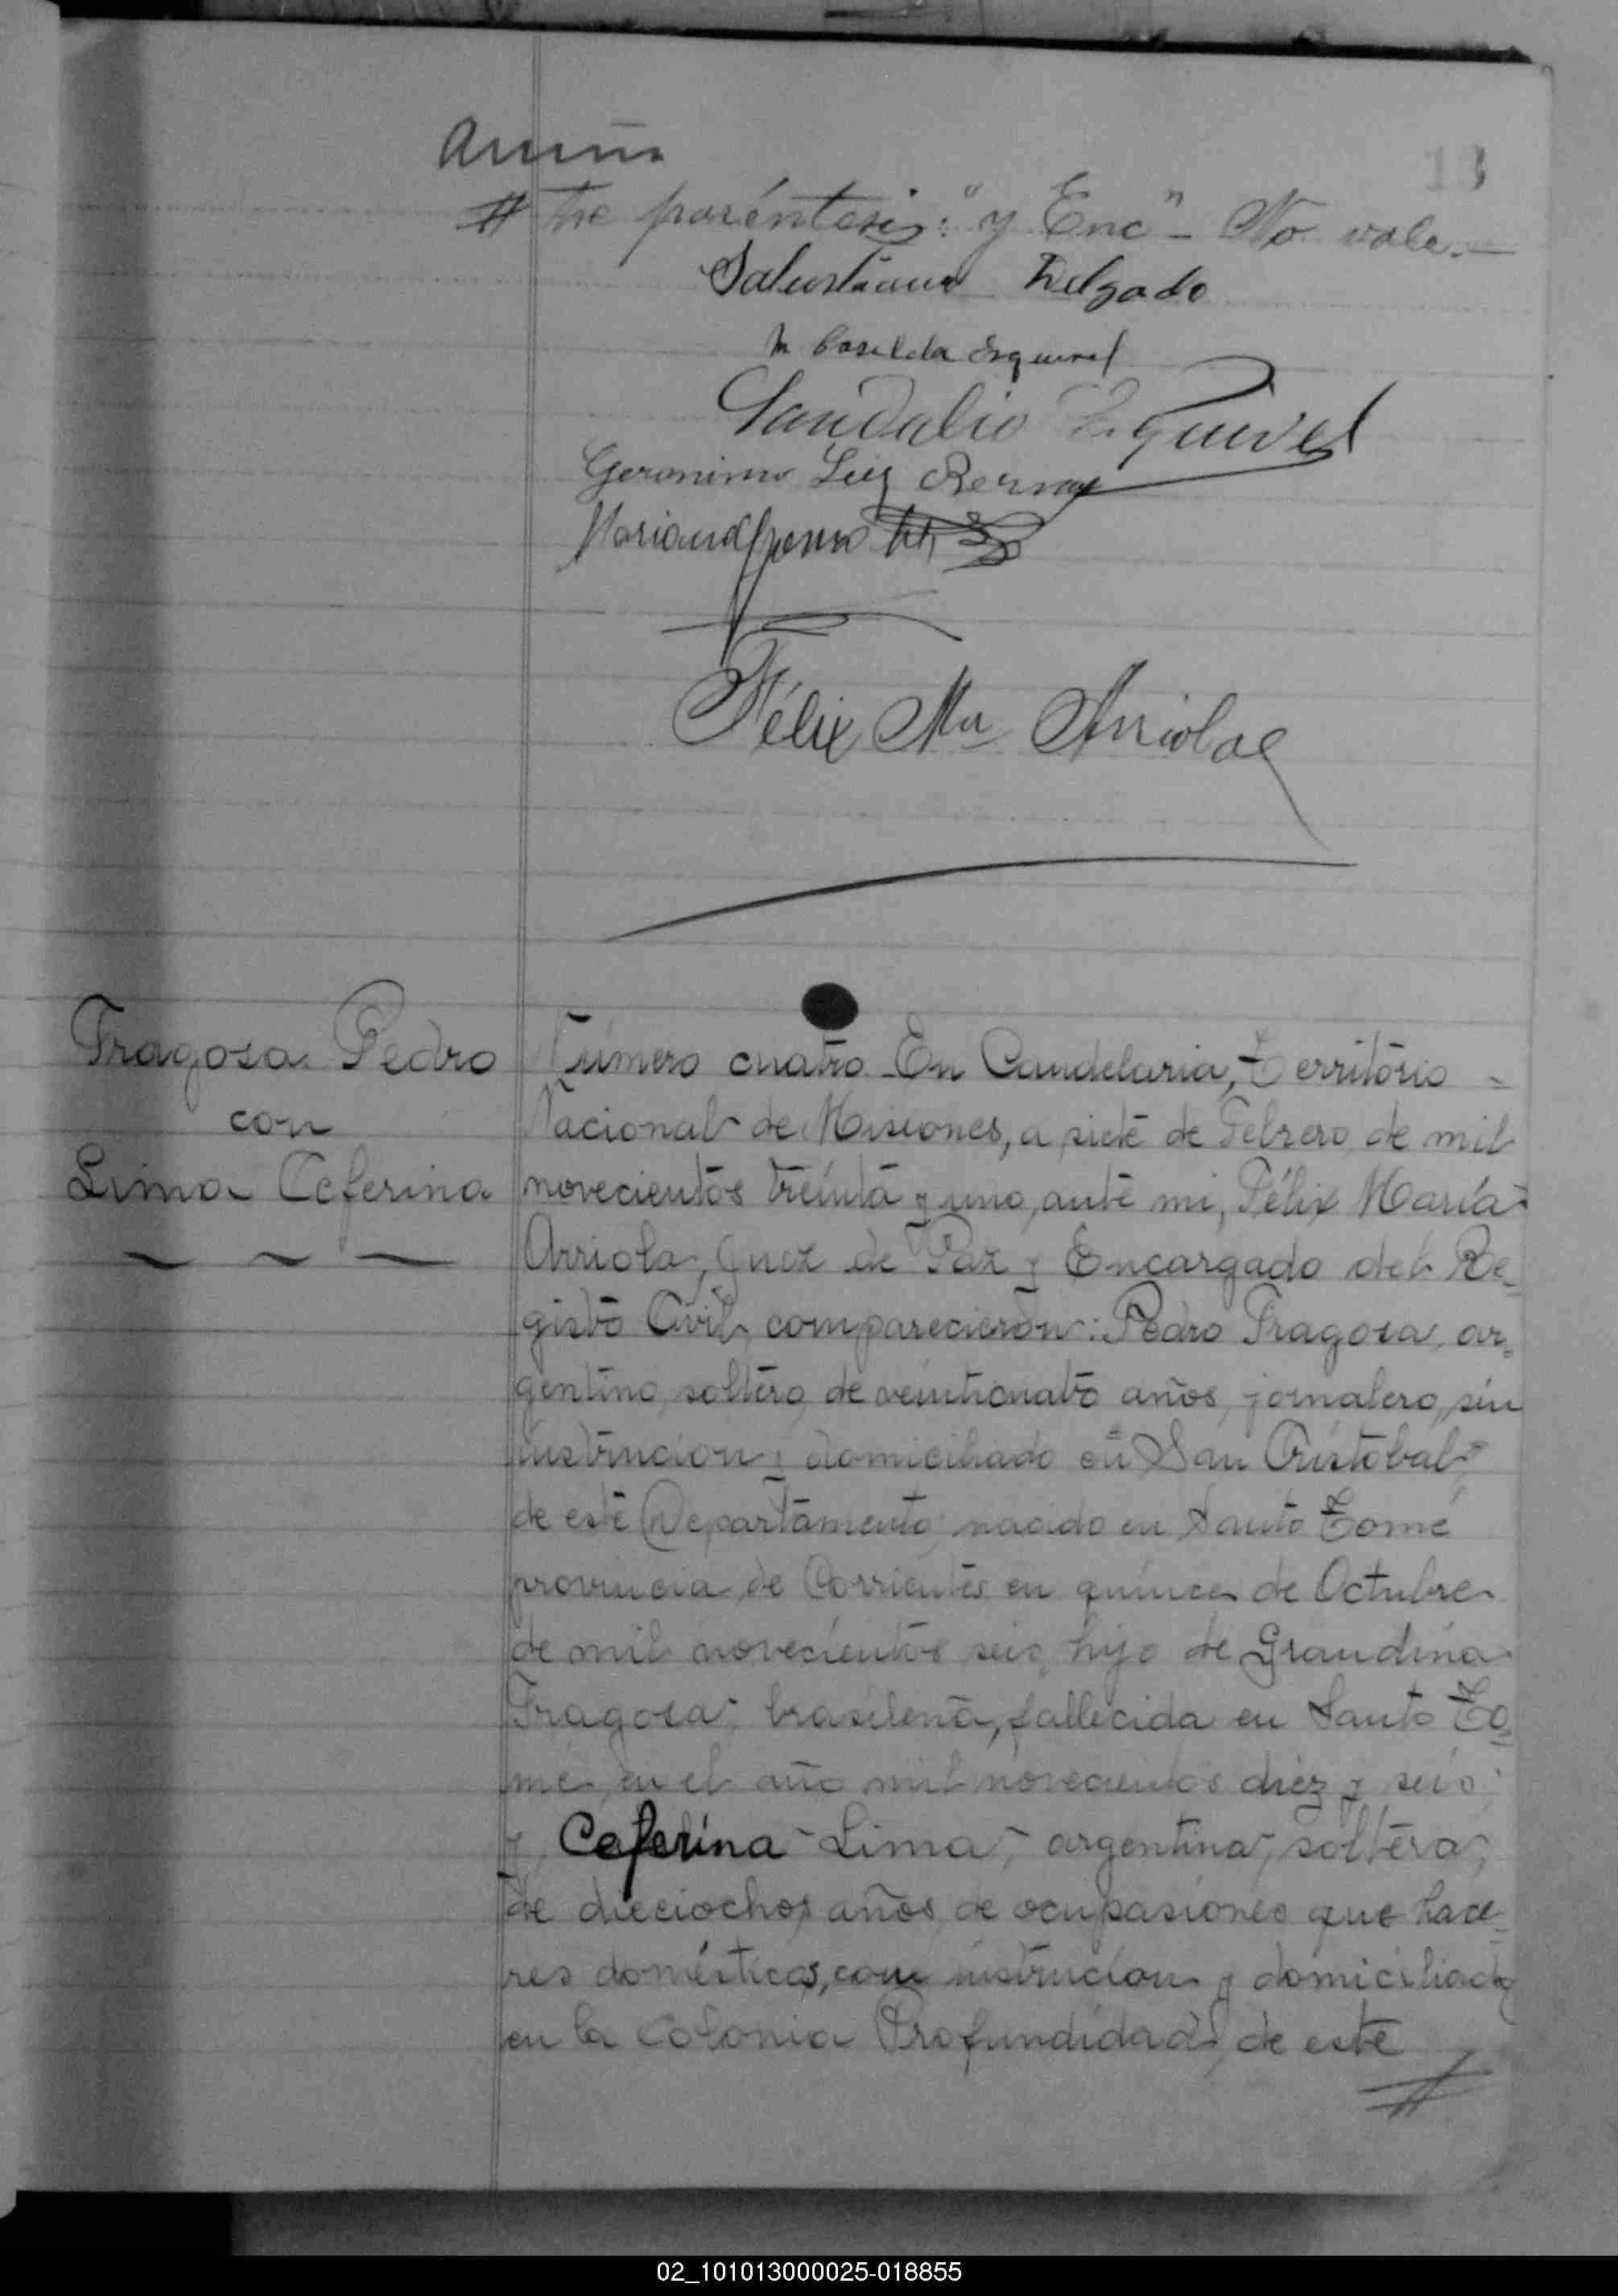 13
# tre paréntesis: "y Enc" - No vale.-
Salustiano Delgado
M Casilda Esquivel
Sandalio Esquivel
Geronimo Luiz
Félix Ma Arriola
Fragosa Pedro
con
Lima Ceferina
Número cuatro En Candelaria, Territorio -
Nacional de Misiones, a siete de Febrero de mil
novecientos treinta y uno, ante mi, Félix María
Arriola, Juez de Paz y Encargado del Re=
gistro Civil, comparecieron: Pedro Fragosa, ar=
gentino, soltero, de veinticuatro años, jornalero, sin
instrucion y domiciliado en San Cristobal,
de este Departamento, nacido en Santo Tomé
provincia de Corrientes en quince de Octubre
de mil novecientos seis, hijo de Grandina
Fragosa, brasileña, fallecida en Santo To=
mé, en el año mil novecientos diez y seis;
y Ceferina Lima, argentina, soltera,
de dieciocho años, de ocupasiones que hace=
res domésticos, con instrucion y domiciliada
en la Colonia Profundidad, de este
#
02_101013000025-018855